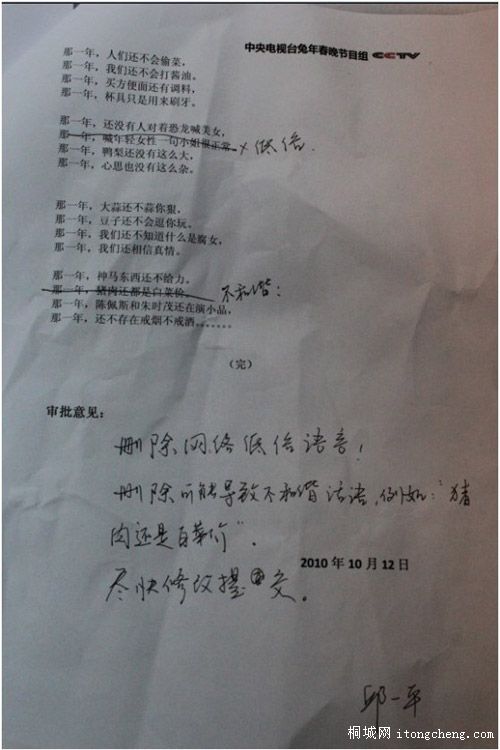 中央电视台兔年春晚节目组 CCTV
那一年，人们还不会偷菜，
那一年，我们还不会打酱油。
那一年，买方便面还有调料，
那一年，杯具只是用来刷牙。
那一年，还没有人对着恐龙喊美女，
那一年，喊年轻女性一句小姐很正常 × 低俗.
那一年，鸭梨还没有这么大，
那一年，心思也没有这么杂。
那一年，大蒜还不蒜你狠，
那一年，豆子还不会逗你玩。
那一年，我们还不知道什么是腐女，
那一年，我们还相信真情。
那一年，神马东西还不给力，
那一年，猪肉还都是白菜价， 不和谐：
那一年，陈佩斯和朱时茂还在演小品，
那一年，还不存在戒烟不戒酒…….
（完）
审批意见：
删除网络低俗语言！
删除可能导致不和谐话语，例如：“猪
肉还是白菜价”.
2010 年 10 月 12 日
尽快修改提交。
邱一平
桐城网 itongcheng.com